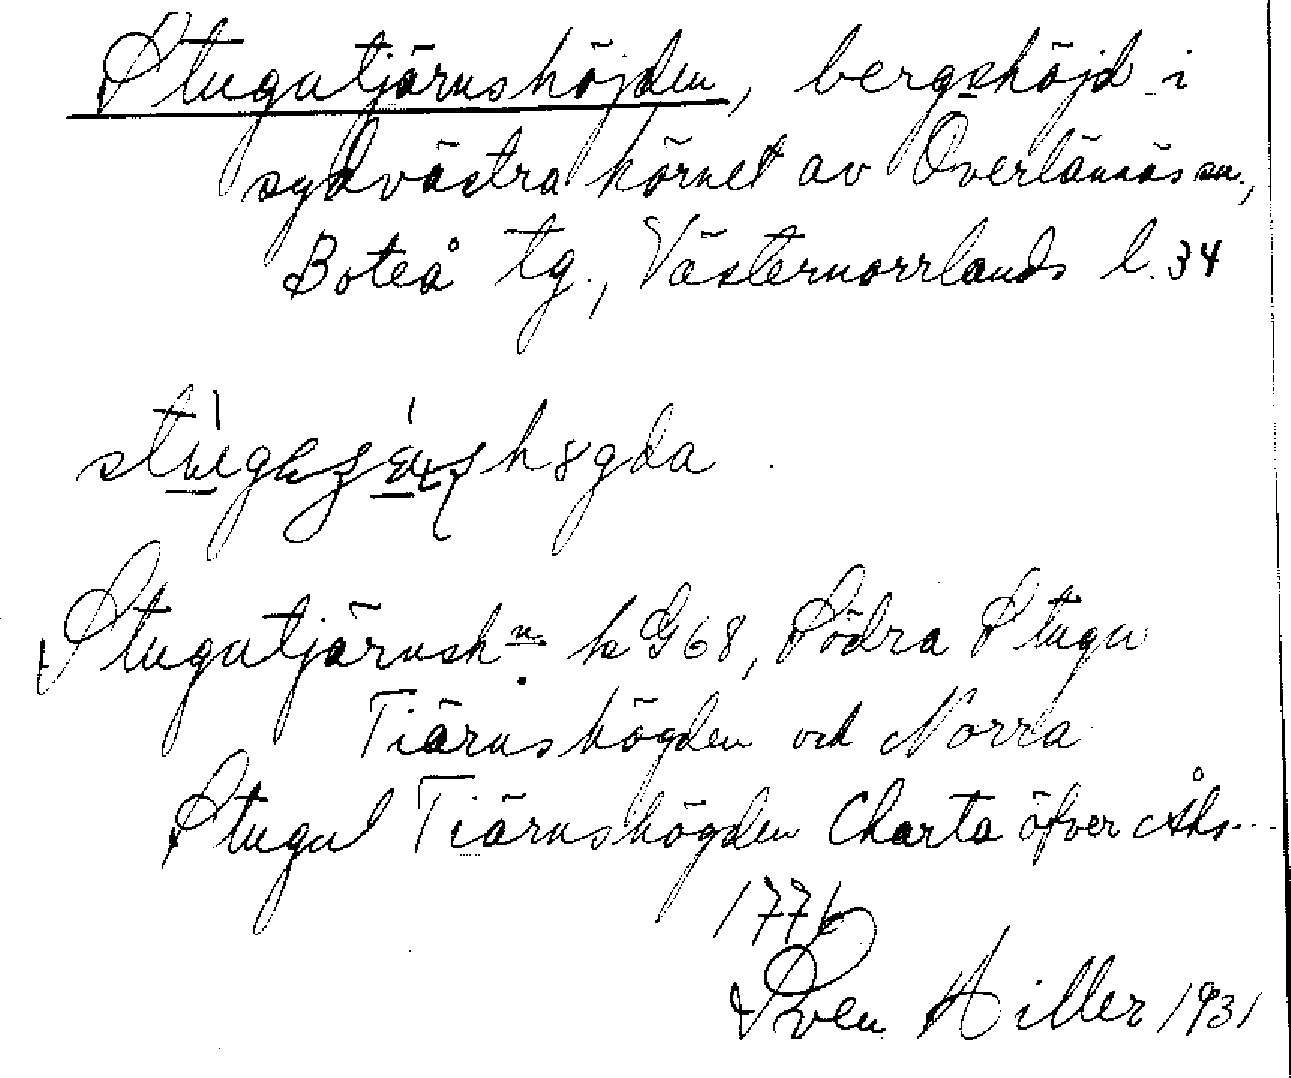 Stugutjärnshöjden, bergshöjd i
sydvästra hörnet av Överlännäs sn.,
Boteå tg., Västernorrlands l. 34
högda
Stugutjärnsh.n k G 68, Södra Stugu
Tiärnshögden och Norra
Stugu Tiärnshögden Charta öfver Åhs...
1776
Sven Hiller 1931